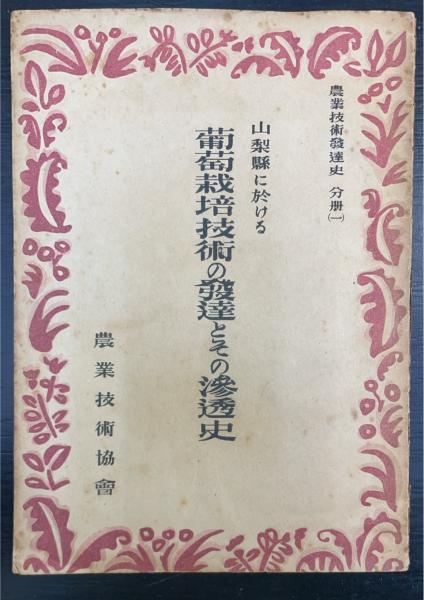 農業技術發達史 分册(一)
山梨縣に於ける
葡萄栽培技術の發達とその滲透史
農業技術協會